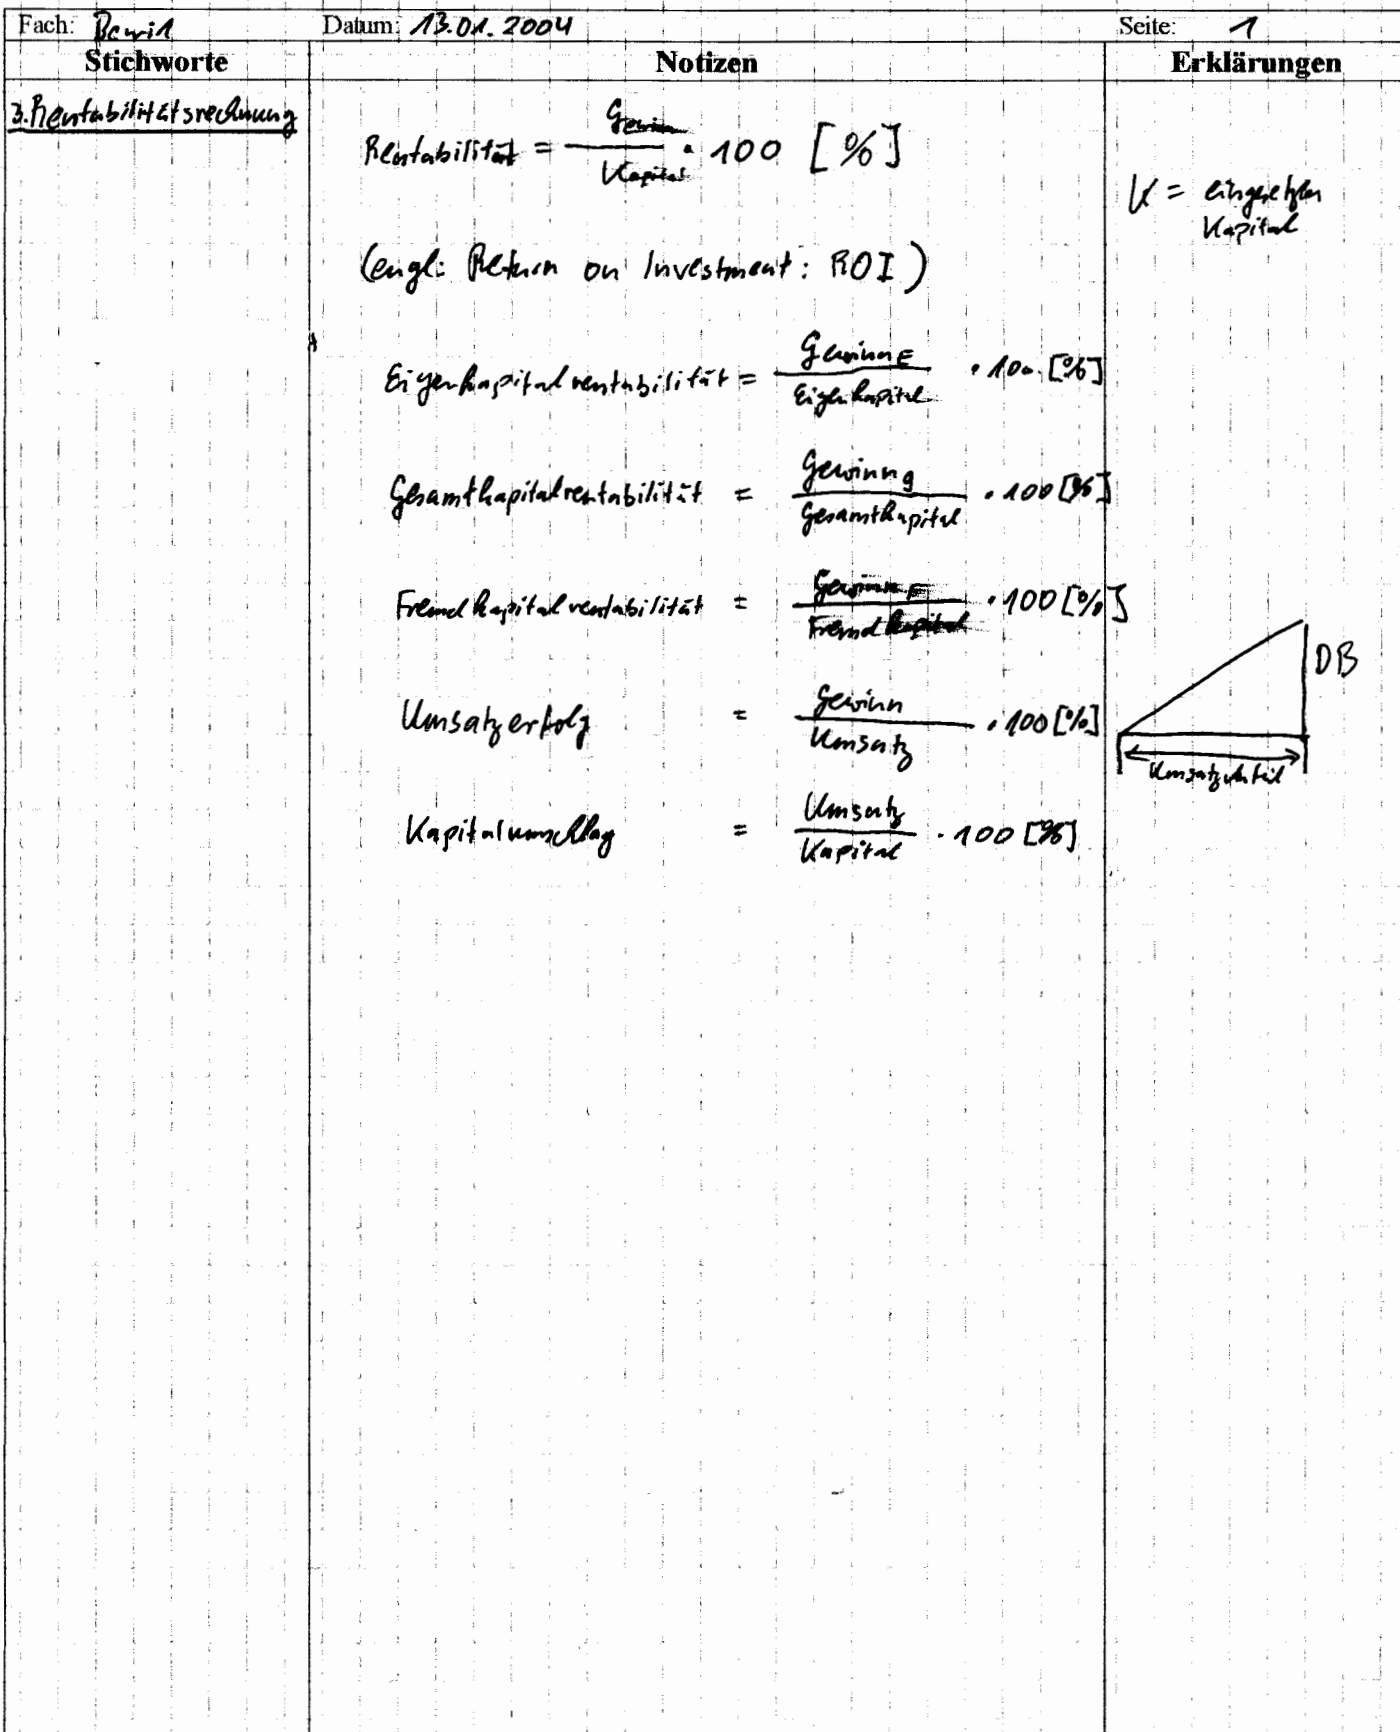 Fach: Bewi1 Datum: 13.01.2004 Seite: 1
Stichworte Notizen Erklärungen
3. Rentabilitätsrechnung
Rentabilität = Gewinn / Kapital · 100 [%]
K = eingesetztes
Kapital
(engl: Return on Investment: ROI)
Eigenkapitalrentabilität = Gewinn E / Eigenkapital · 100 [%]
Gesamtkapitalrentabilität = Gewinn g / Gesamtkapital · 100 [%]
Fremdkapitalrentabilität = Gewinn F / Fremdkapital · 100 [%]
DB
Umsatzerfolg = Gewinn / Umsatz · 100 [%]
Umsatzanteil
Kapitalumschlag = Umsatz / Kapital · 100 [%]